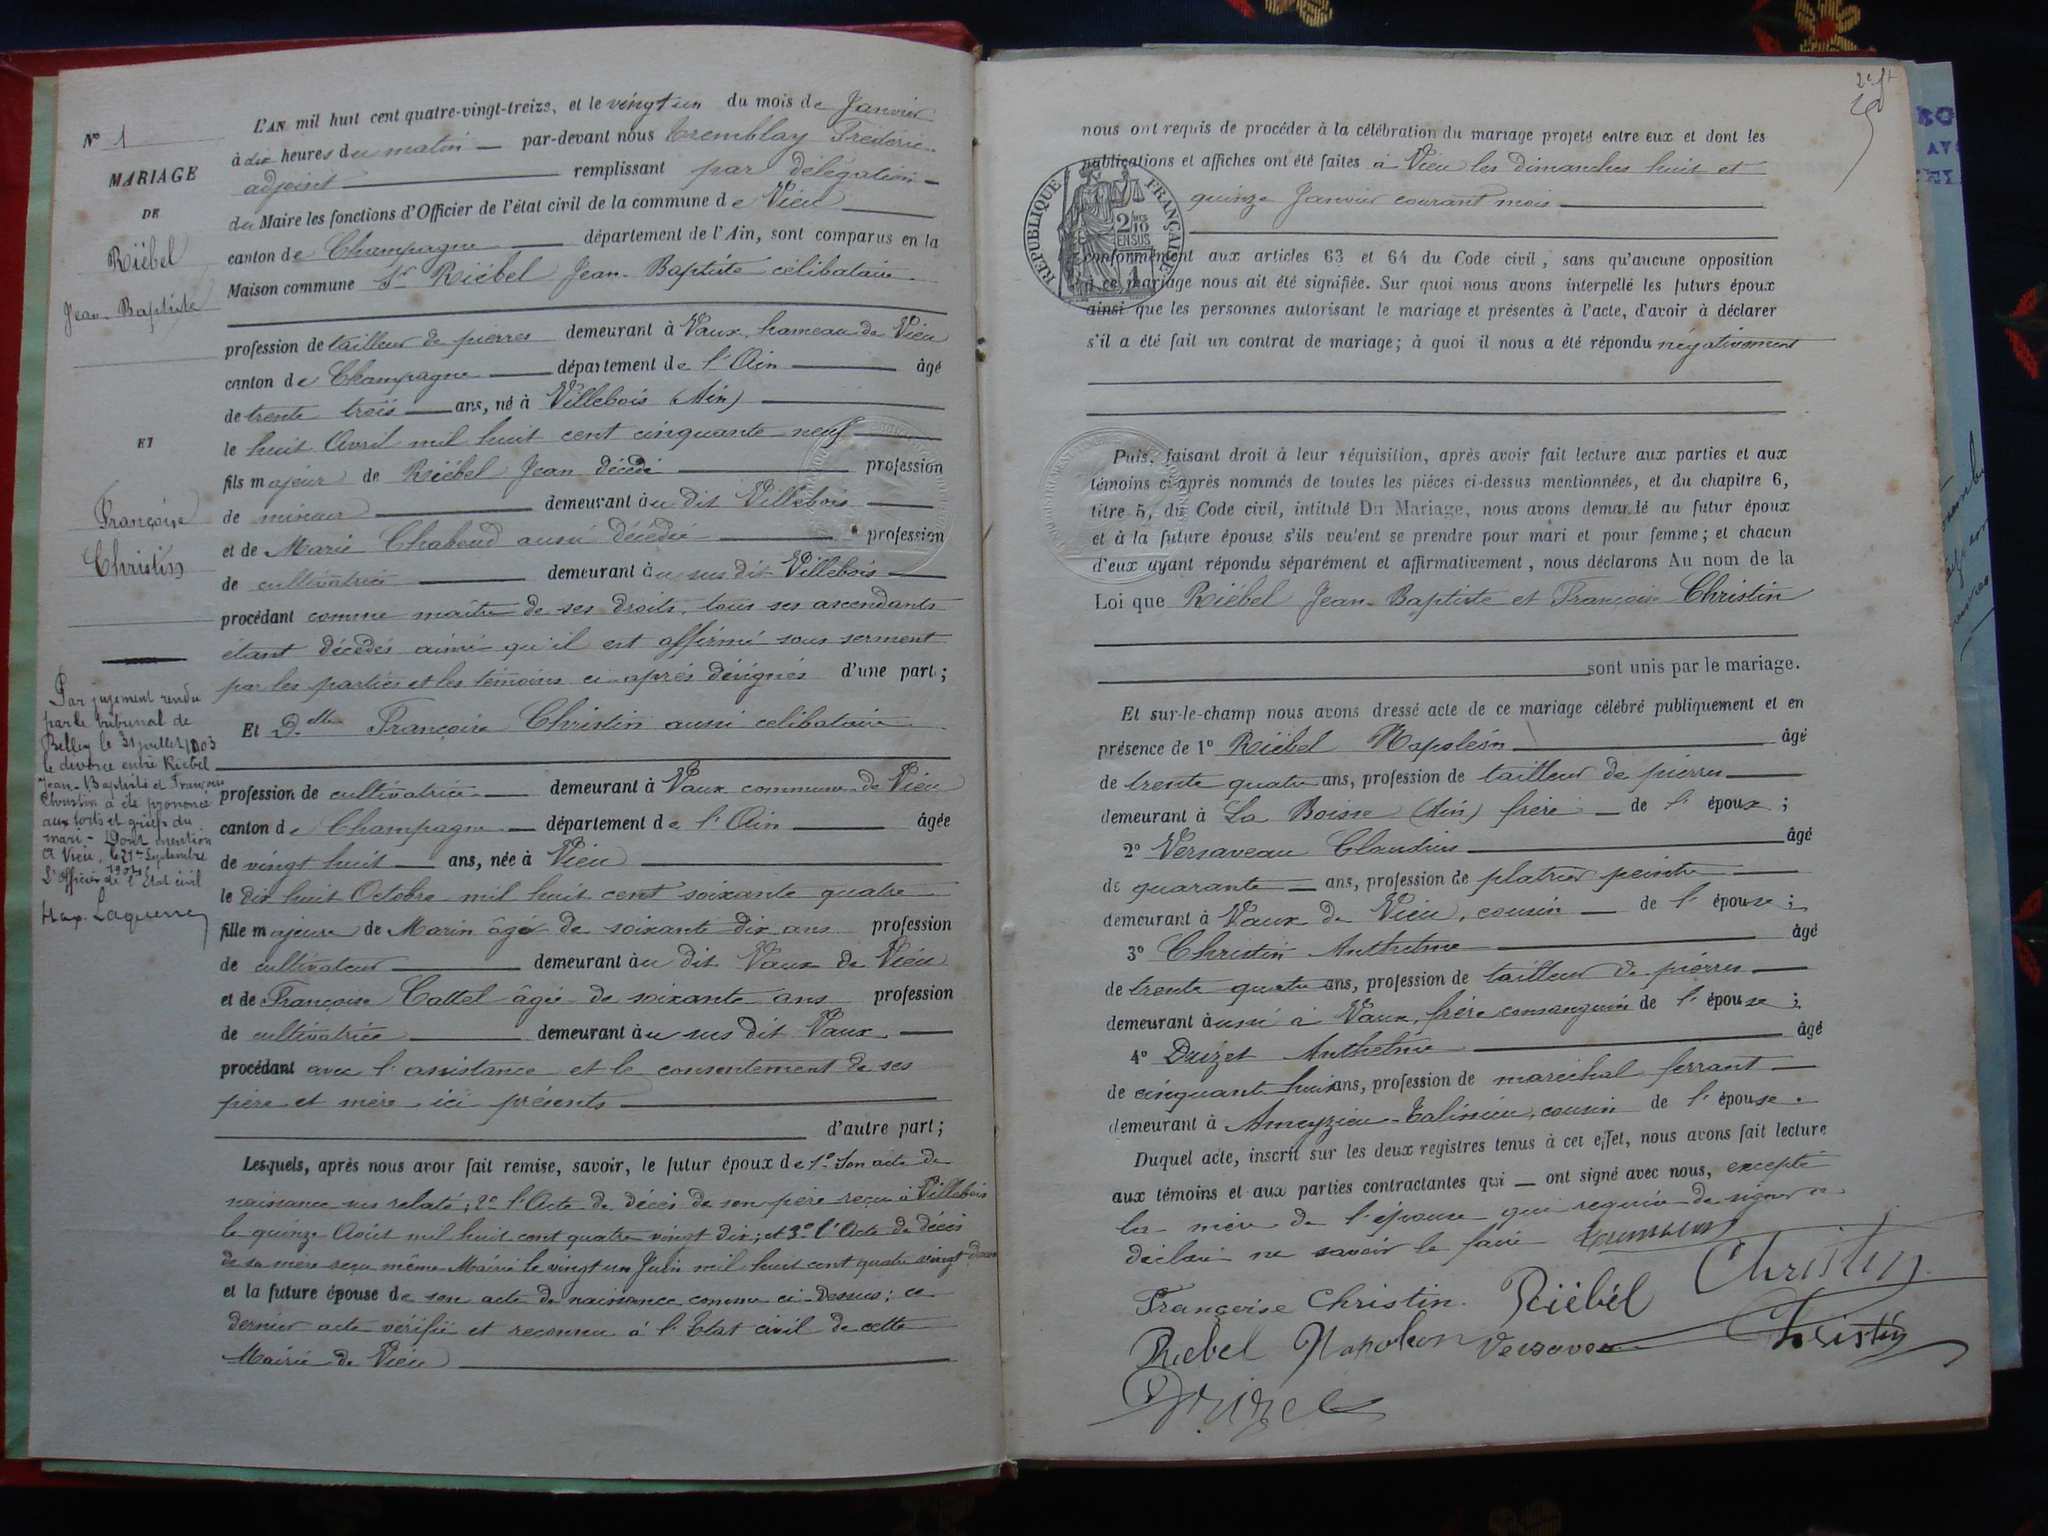 N° 1
MARIAGE
DE
Riébel
Jean-Baptiste
ET
Françoise
Christin
Par jugement rendu
par le tribunal de
Belley le 31 juillet 1903
le divorce entre Riebel
Jean-Baptiste et Françoise
Christin a été prononcé
aux torts et griefs du
mari - Dont mention
A Vieu, le 21 Septembre
L'Officier de l'Etat civil
L'AN mil huit cent quatre-vingt-treize, et le vingt un du mois de Janvier
à dix heures du matin par-devant nous Tremblay Frédéric
adjoint remplissant par délégation
du Maire les fonctions d'Officier de l'état civil de la commune de Vieu
canton de Champagne département de l'Ain, sont comparus en la
Maison commune Sr Riébel Jean-Baptiste célibataire
profession de tailleur de pierres demeurant à Vaux, hameau de Vieu
canton de Champagne département de l'Ain âgé
de trente trois ans, né à Villebois (Ain)
le huit Avril mil huit cent cinquante neuf
fils majeur de Riébel Jean décédé profession
de mineur demeurant àu dit Villebois
et de Marie Chaboud aussi décédée profession
de cultivatrice demeurant àu sus dit Villebois
procédant comme maître de ses droits, tous ses ascendants
étant décédés ainsi qu'il est affirmé sous serment
par les parties et les témoins ci-après désignés d'une part;
Et Dlle Françoise Christin aussi célibataire
profession de cultivatrice demeurant à Vaux commune de Vieu
canton de Champagne département de l'Ain âgée
de vingt huit ans, née à Vieu
le dix huit Octobre mil huit cent soixante quatre
fille majeure de Marin âgé de soixante dix ans profession
de cultivateur demeurant àu dit Vaux de Vieu
et de Françoise Cattel âgée de soixante ans profession
de cultivatrice demeurant àu sus dit Vaux
procédant avec l'assistance et le consentement de ses
père et mère ici présents
d'autre part;
Lesquels, après nous avoir fait remise, savoir, le futur époux de 1° Son acte de
naissance sus relaté; 2° l'Acte de décès de son père reçu à Villebois
le quinze Août mil huit cent quatre vingt dix; et 3° l'Acte de décès
de sa mère reçu même Mairie le vingt un Juin mil huit cent quatre vingt
et la future épouse de son acte de naissance comme ci-dessus; ce
dernier acte vérifié et reconnu à l'Etat civil de cette
Mairie de Vieu
nous ont requis de procéder à la célébration du mariage projeté entre eux et dont les
publications et affiches ont été faites à Vieu les dimanches huit et
quinze Janvier courant mois
RÉPUBLIQUE FRANÇAISE
2/10
EN SUS
conformément aux articles 63 et 64 du Code civil, sans qu'aucune opposition
à ce mariage nous ait été signifiée. Sur quoi nous avons interpellé les futurs époux
ainsi que les personnes autorisant le mariage et présentes à l'acte, d'avoir à déclarer
s'il a été fait un contrat de mariage; à quoi il nous a été répondu négativement
Puis, faisant droit à leur réquisition, après avoir fait lecture aux parties et aux
témoins ci-après nommés de toutes les pièces ci-dessus mentionnées, et du chapitre 6,
titre 5, du Code civil, intitulé Du Mariage, nous avons demandé au futur époux
et à la future épouse s'ils veulent se prendre pour mari et pour femme; et chacun
d'eux ayant répondu séparément et affirmativement, nous déclarons Au nom de la
Loi que Riébel Jean-Baptiste et Françoise Christin
sont unis par le mariage.
Et sur-le-champ nous avons dressé acte de ce mariage célébré publiquement et en
présence de 1° Riébel Napoléon âgé
de trente quatre ans, profession de tailleur de pierres
demeurant à La Boisse (Ain) frère de l'époux;
2° Versaveau Claudius âgé
de quarante ans, profession de platrier peintre
demeurant à Vaux de Vieu, cousin de l'épouse;
3° Christin Anthelme âgé
de trente quatre ans, profession de tailleur de pierres
demeurant àussi à Vaux, frère consanguin de l'épouse;
4° Drizet Anthelme âgé
de cinquant huit ans, profession de maréchal ferrant
demeurant à Ameyzieu-Talissieu, cousin de l'épouse.
Duquel acte, inscrit sur les deux registres tenus à cet effet, nous avons fait lecture
aux témoins et aux parties contractantes qui ont signé avec nous, excepté
la mère de l'épouse qui requise de signer a
déclaré ne savoir le faire
Christin
Françoise Christin. Riébél
Riebel Napoleon Versaveau Christin
Drizet